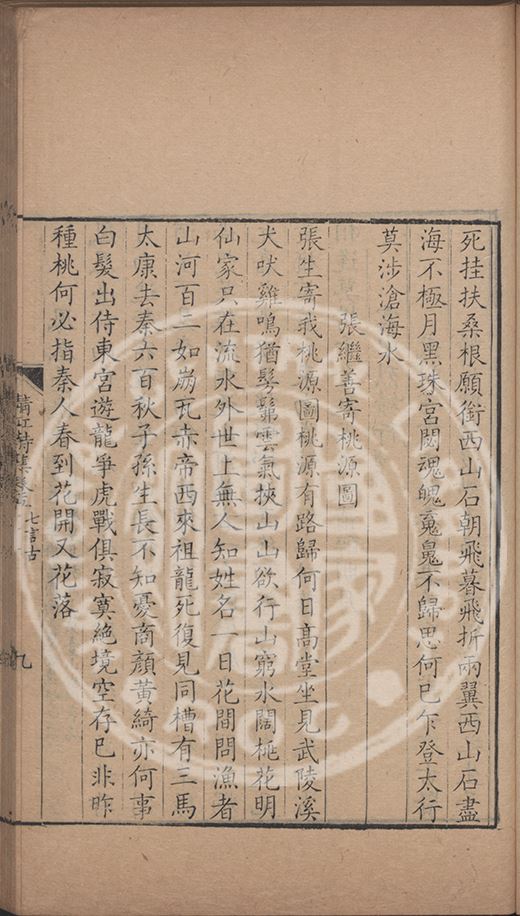 死挂扶桑根願銜西山石朝飛暮飛折兩翼西山石盡
海不極月黑珠宮閟魂魄毚毚不歸思何已乍登太行
莫涉滄海水
張繼善寄桃源圖
張生寄我桃源圖桃源有路歸何日髙堂坐見武陵溪
犬吠雞鳴猶髣髴雲氣挾山山欲行山窮水闊桃花明
仙家只在流水外世上無人知姓名一日花間問漁者
山河百二如崩瓦赤帝西來祖龍死復見同槽有三馬
太康去秦六百秋子孫生長不知憂商顏黃綺亦何事
白髮出侍東宮遊龍爭虎戰俱寂寞絶境空存已非昨
種桃何必指秦人春到花開又花落
清江詩集卷五 七言古 九